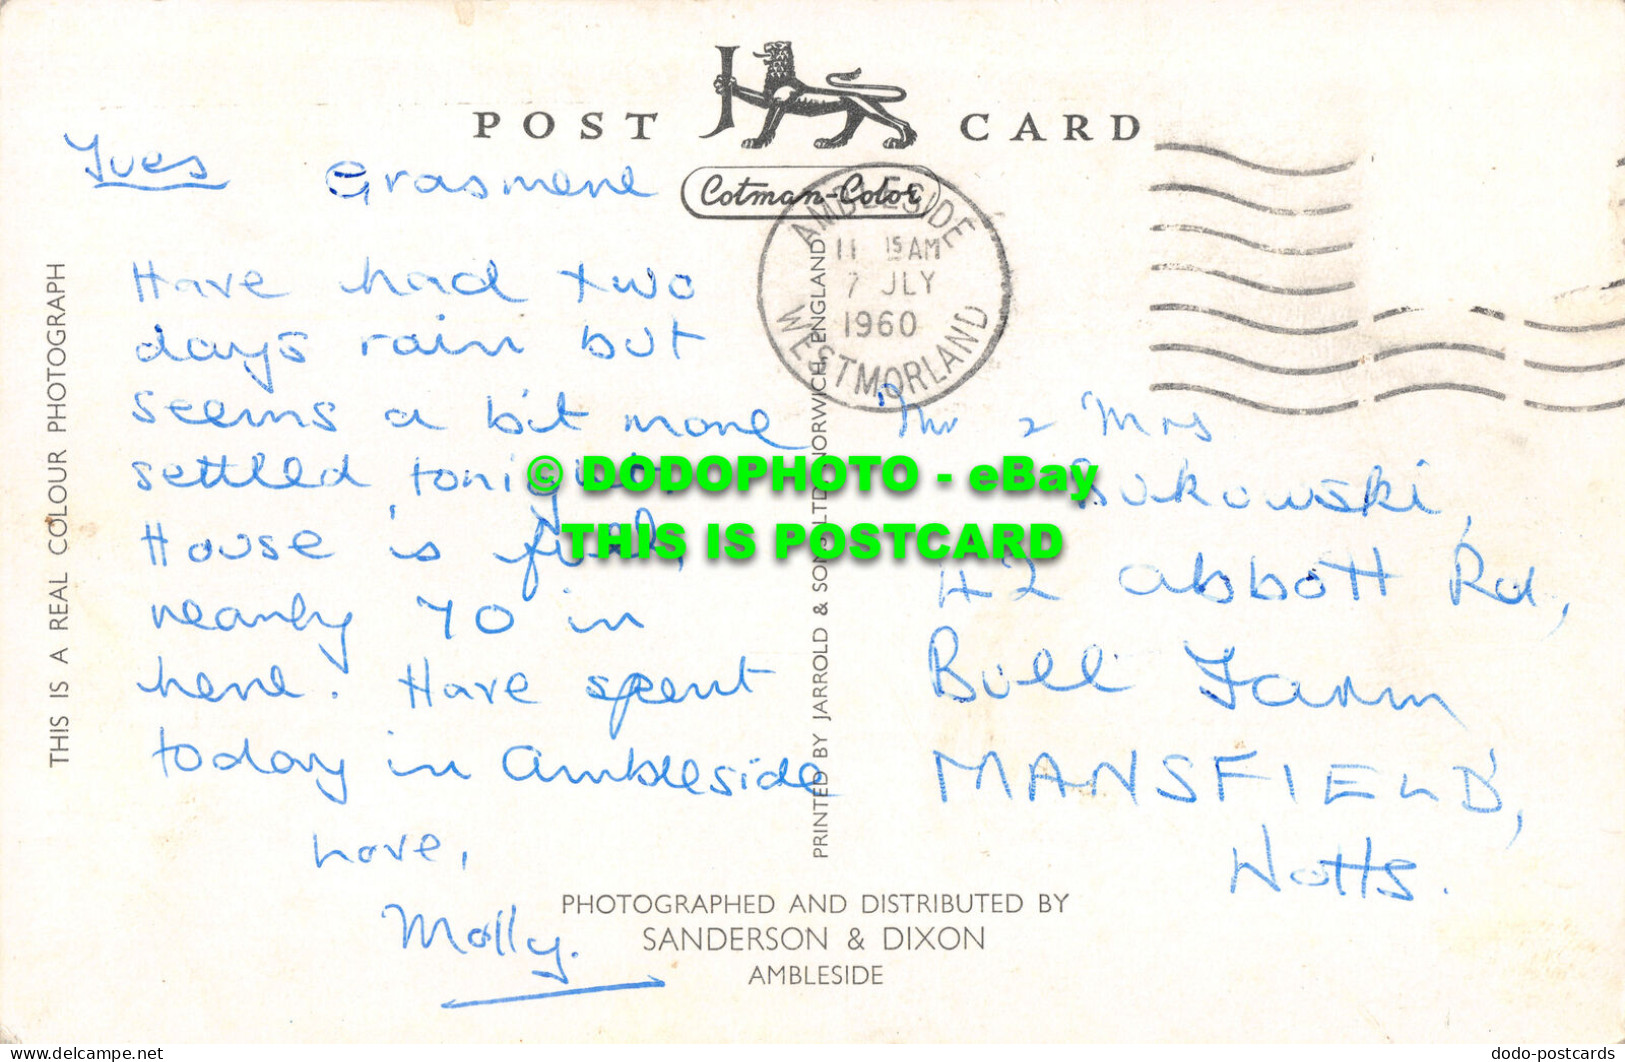 POST CARD
Cotman-Color
AMBLESIDE
11 15 AM
7 JLY
1960
WESTMORLAND
Tues Grasmere
Have had two
days rain but
seems a bit more
settled, tonight.
House is full,
nearly 70 in
here. Have spent
today in Ambleside
Love,
Molly.
Mr & Mrs
Bukowski,
42 Abbott Rd,
Bull Farm
MANSFIELD,
Notts.
THIS IS A REAL COLOUR PHOTOGRAPH
PRINTED BY JARROLD & SONS LTD. NORWICH, ENGLAND
PHOTOGRAPHED AND DISTRIBUTED BY
SANDERSON & DIXON
AMBLESIDE
© DODOPHOTO - eBay
THIS IS POSTCARD
the best of collecting on delcampe.net
dodo-postcards